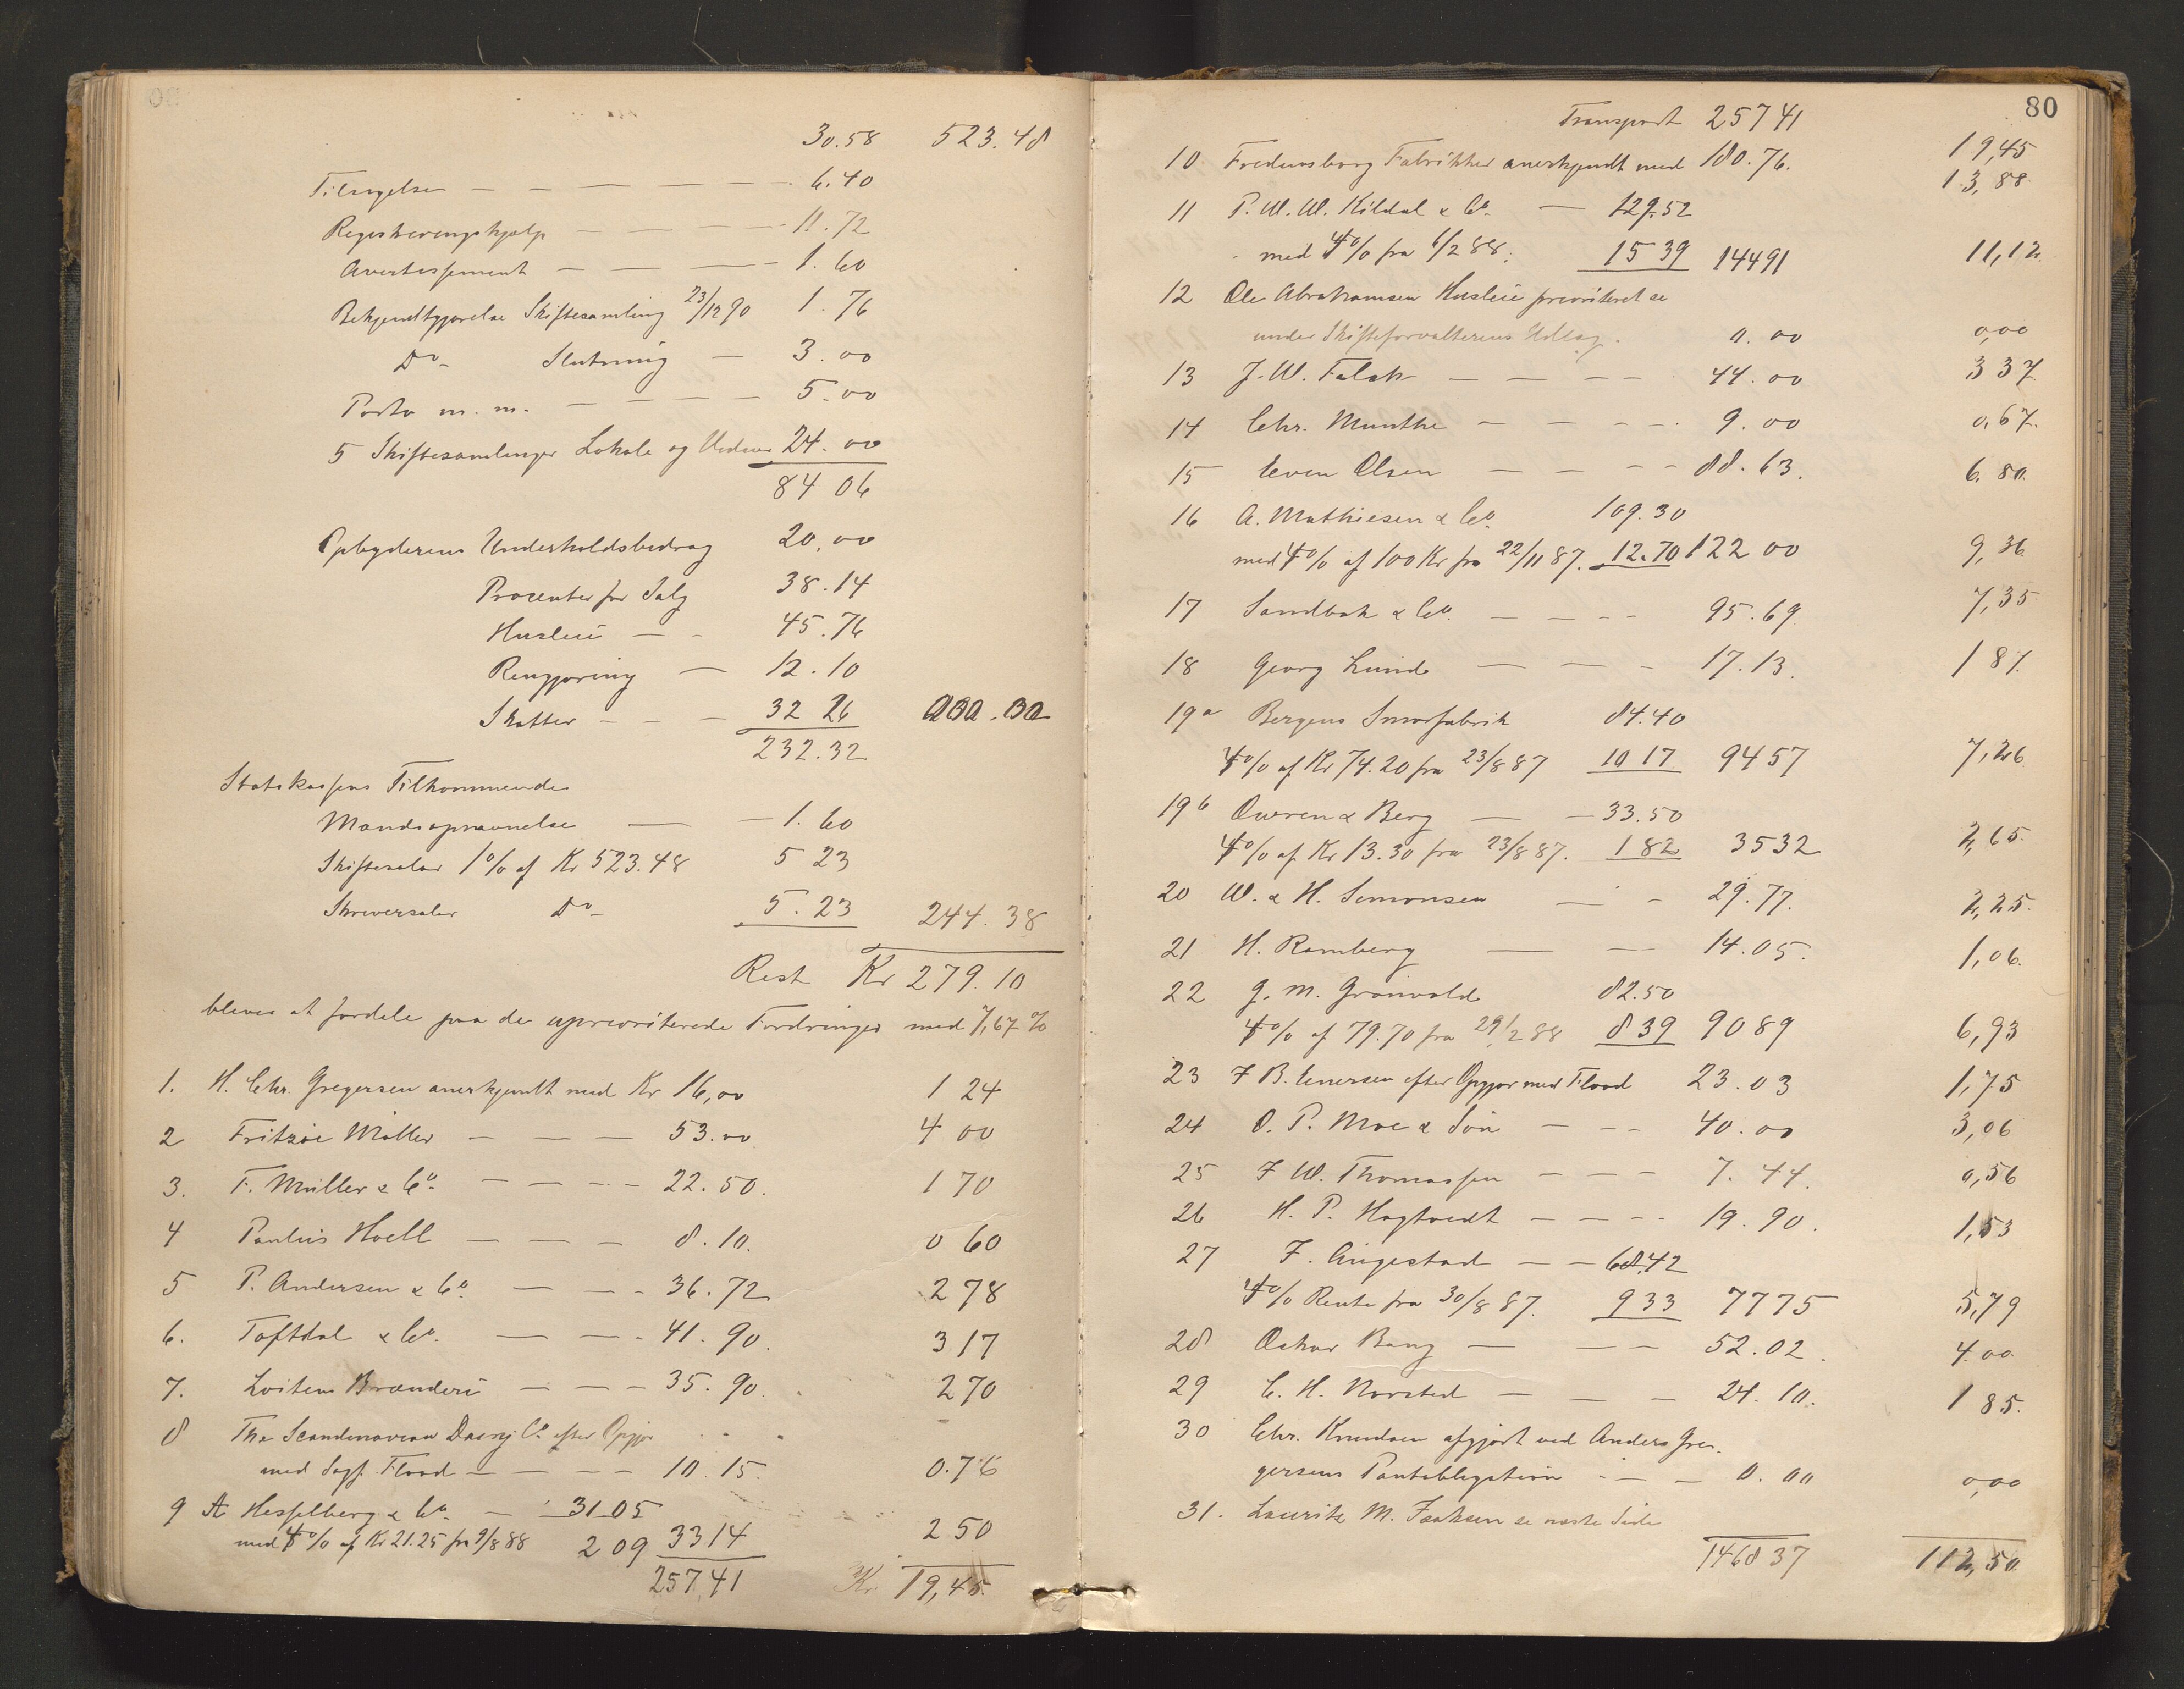 30.58 523.48
Tilsigelser — — — — — — 6.40
Registreringshjælp — — — — 11.72
Avertissement — — — — 1.60
Bekjendtgjørelse Skiftesamling 23/12 90 1.76
Do- Slutning — 3.00
Porto m. m. — — — — 5.00
5 Skiftesamlinger Lokale og 24.00
84 06
Opbyderens Underholdsbidrag 20,00
Procenter for Salg 38.14
Husleie — - 45.76
Rengjøring — 12.10
Skatter - — — 32 26
232.32
Statskassens Tilkommende
Mandsopnævnelse — — 1.60
Skiftesalær 1% af Kr 523.48 5 23
Skriversalær Do- 5.23 244.38
Rest Kr 279.10
bliver at fordele paa de uprioriterede Fordringer med 7,67 %
1. H. Chr. Gregersen anerkjendt med Kr 16,00 1 24
2 Fritzøe Møller — — — 53.00 4 00
3. F. Müller & Co. — — — 22.50. 1 70
4 Paulus Hoell — — — 8.10. 0 60
5 P. Andersen & Co. — — - 36.72 2 78
6. Toftdal & Co. — — - 41.90. 3 17
7. Loitens Brænderi — — — 35.90. 2 70
8 The Scandinavian Dairy Co. efter Opgjør
med Sagf. Flood — — — — 10.15. 0.76
9 A Hesselberg & Co. — 31 05
med 4% af Kr 21.25 fra 9/8 88 2 09 33 14 2 50
257.41 Kr. 19,45.
80
Transport 257 41 19,45
10 Fredensborg Fabrikker anerkjendt med 180.76. 13,88
11 P. W. W. Kildal & Co. — 129.52
med 4% fra 6/2 88. 15 39 144 91 11,12
12 Ole Abrahamsen Husleie prioriteret se
under Skifteforvalterens Udlæg. 0.00 0,00
13 J. W. Falck — — — — 44.00 3 37
14 Chr. Munthe — — — - 9.00 0,67.
15 Even Olsen — — — - 88.63. 6.80.
16 A. Mathiesen & Co. 109.30
med 4% af 100 Kr fra 22/11 87. 12.70 122 00 9,36
17 Sandbak & Co. — — — - 95.69 7,35
18 Georg Lunde — — - 17.13. 1 31
19a Bergens Smørfabrik 84.40
4% af Kr 74.20 fra 23/8 87 10 17 94 57 7,26
19b Owren & Berg — — 33.50
4% af Kr 13.30 fra 23/8 87. 1 82 35 32 2,65.
20 W. & H. Simonsen — - 29.77. 2,25.
21 H. Ramberg — — 14.05. 1,06.
22 G. M. Grønvold 82.50
4% af 79.70 fra 29/2 88 8 39 90 89 6,93
23 F B. Enersen efter Opgjør med Flood 23.03 1,75
24 O. P. Moe & Søn — - - 40.00 3,06
25 F W. Thomassen — - — - 7.44. 0,56
26 H. P. Hagtvedt — — - - 19.90. 1,53
27 F. Angestad — — 68.42
4% Rente fra 30/8 87. 9 33 77 75 5,79
28 Oskar Bang — — - 52.02. 4.00
29 C. H. Norsted — — — 24.10. 1 85.
30 Chr. Knudsen afgjort ved Anders Gre-
gersens Pantobligation - — — 0.00 0,00
31. Lauritz M. Isaksen se næste Side
1468 37 112,50.